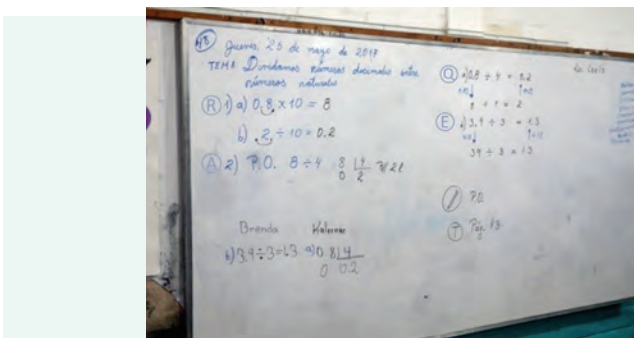 48 jueves, 25 de mayo de 2017
TEMA Dividamos números decimales entre
números naturales
R 1) a) 0.8 x 10 = 8
b) 2 ÷ 10 = 0.2
A 2) P.O. 8 ÷ 4
8 4
0 2
Brenda
b) 3.9 ÷ 3 = 1.3
a) 0.8 4
0 0.2
Q a) 0.8 ÷ 4 = 0.2
8 ÷ 4 = 2
E b) 3.9 ÷ 3 = 1.3
39 ÷ 3 = 13
P.O.
T Pág.